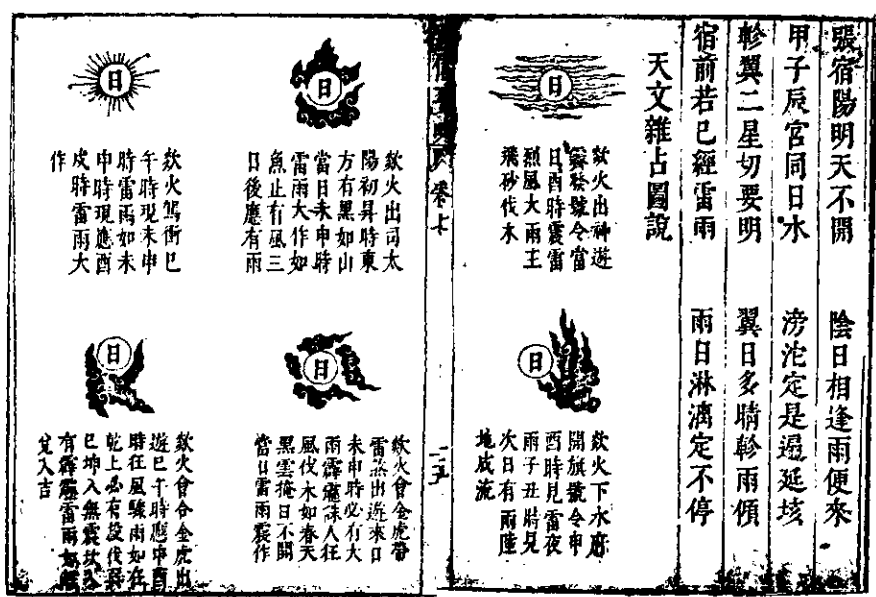 張宿陽明天不開 陰日相逢雨便來
甲子辰宮同日水 滂沱定是遍延垓
軫翼二星切要明 翼日多晴軫雨傾
宿前若已經雷雨 雨日淋漓定不停
天文雜占圖說
日
欻火出神遊
號令當
日酉時震雷
烈風大雨主
飛砂伐木
日
欻火下水府
開旗號令申
酉時見雷夜
雨子丑時見
次日有雨陸
地成流
卷七
日
欻火出司太
陽初昇時東
方有黑如山
當日未申時
雷雨大作如
魚止有風三
日後應有雨
日
欻火會金虎帶
雷煞出遊來日
未申時必有大
雨霹靂誅人狂
風伐木如春天
黑雲掩日不開
當日雷雨震作
日
欻火駕衝巳
午時現未申
時雷雨如未
申時現應酉
戌時雷雨大
作
日
欻火會合金虎出
遊巳午時應申酉
時狂風驟雨如在
乾上必有設伐巽
巳坤入無震坎入
有霹靂雷雨
兌入吉